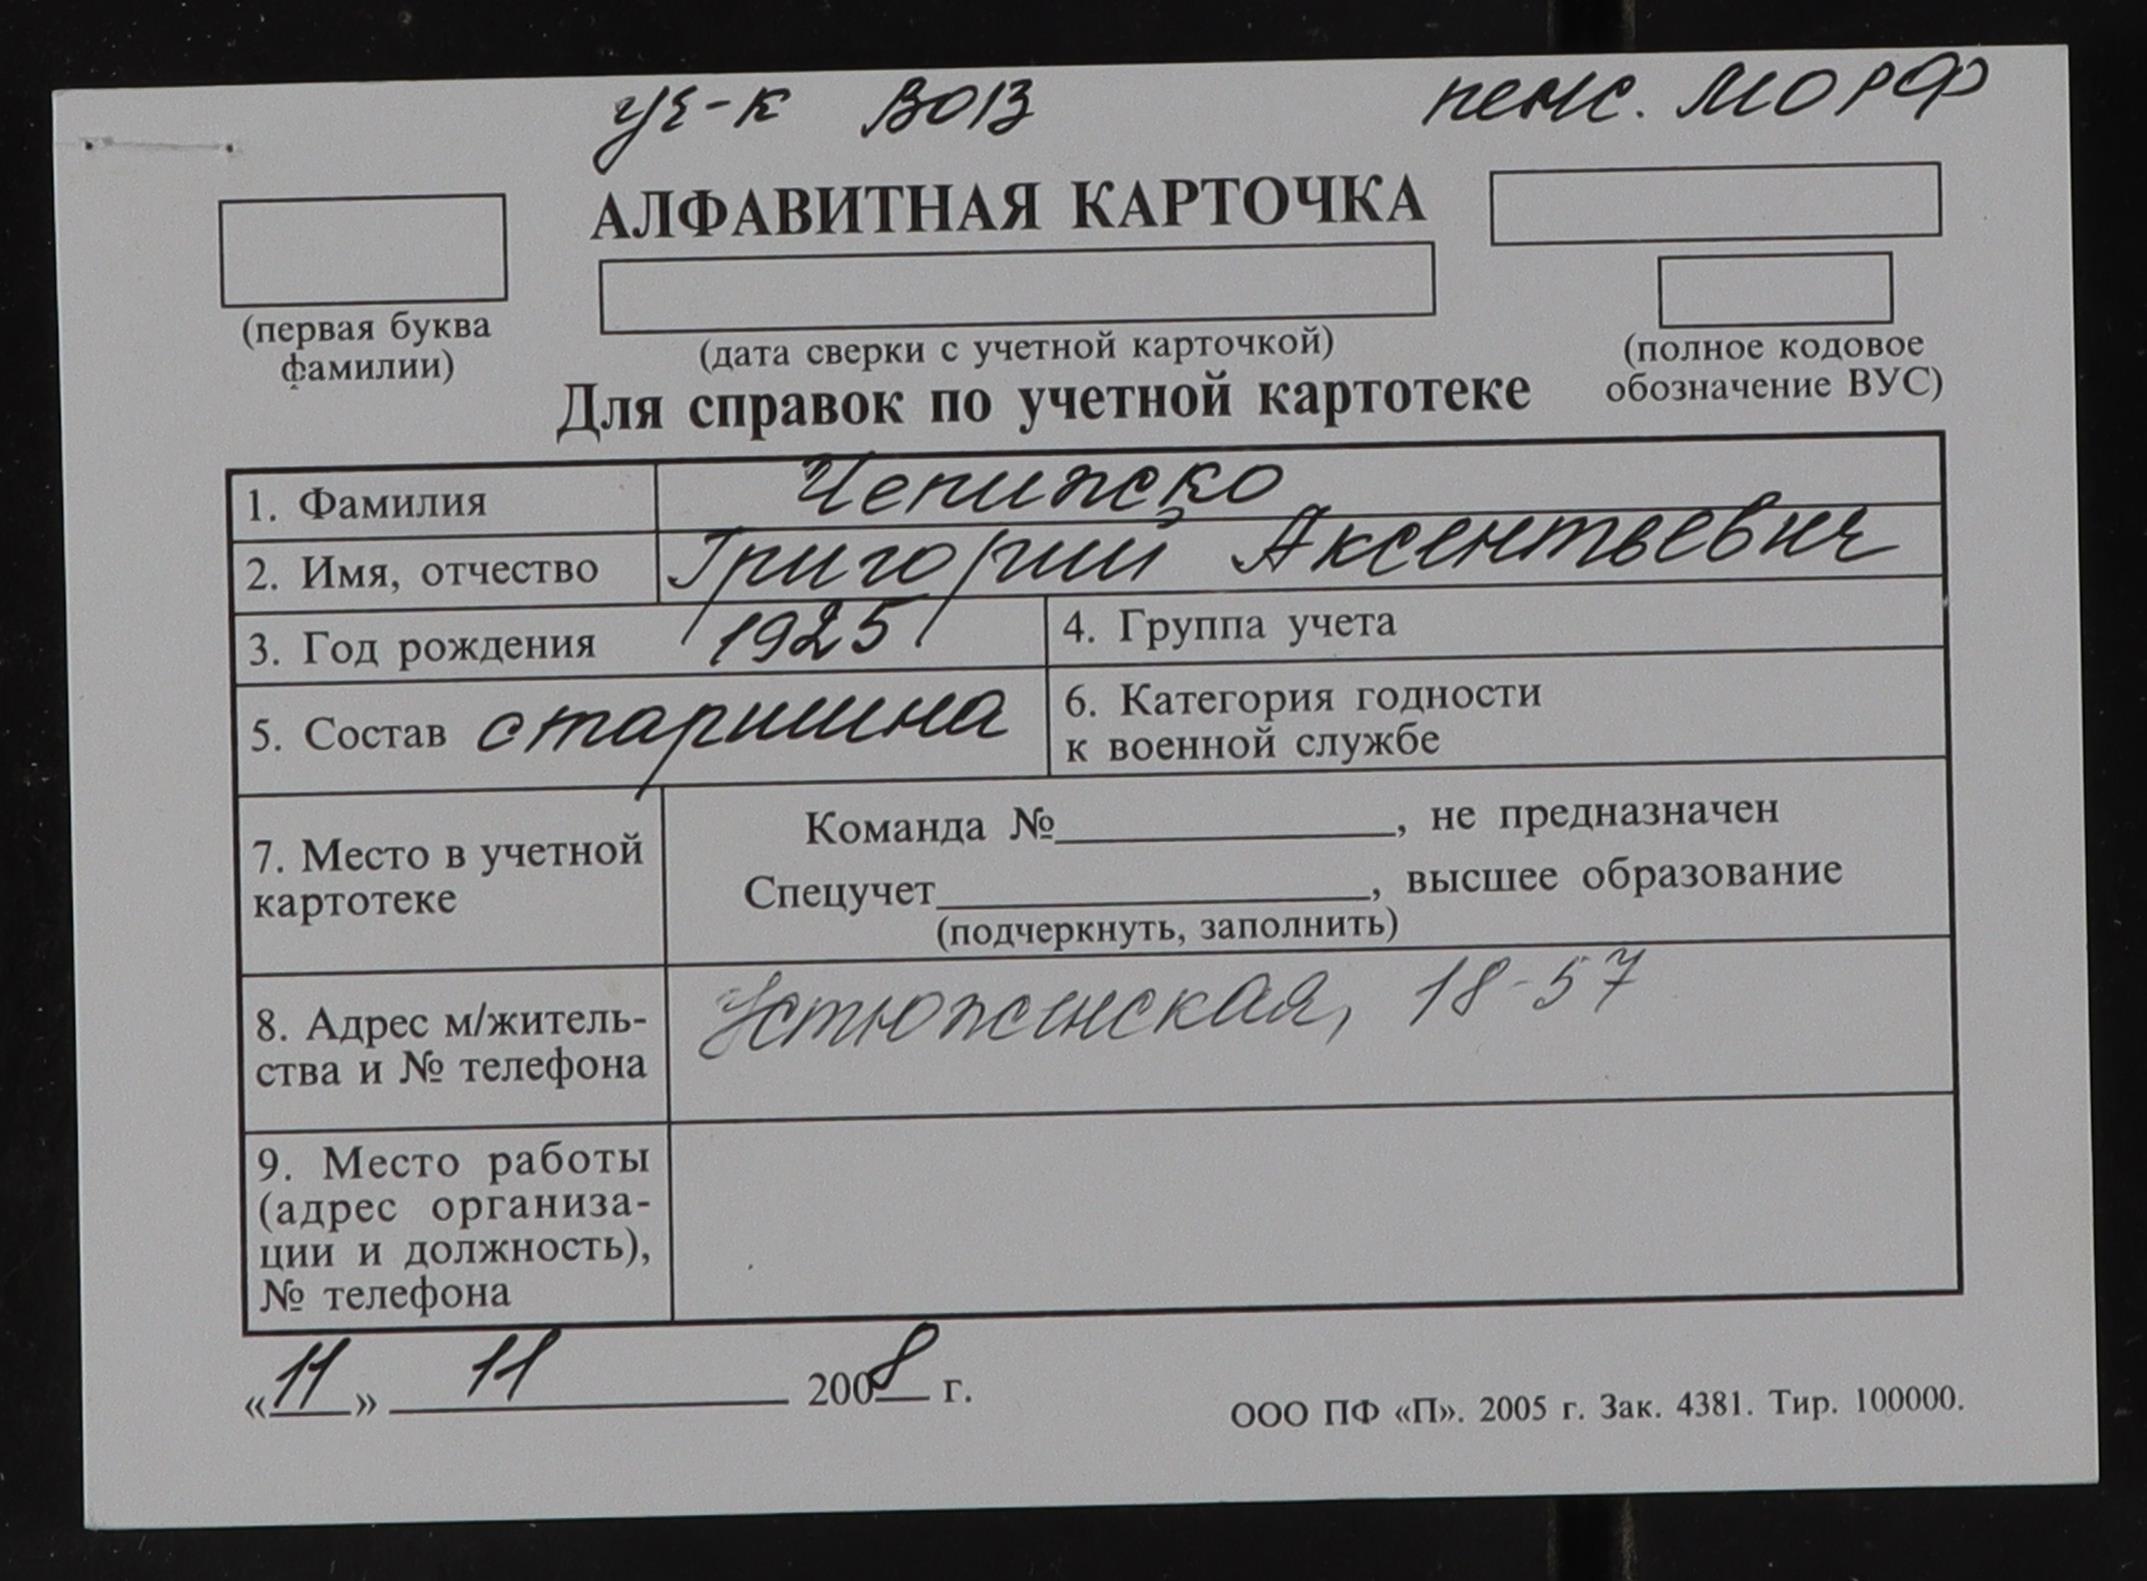 уч-к ВОВ пенс. МО РФ
АЛФАВИТНАЯ КАРТОЧКА
(первая буква фамилии)
(дата сверки с учетной карточкой)
(полное кодовое обозначение ВУС)
Для справок по учетной картотеке
1. Фамилия Чепижко
2. Имя, отчество Григорий Аксентьевич
3. Год рождения 1925
4. Группа учета
5. Состав старшина
6. Категория годности
к военной службе
7. Место в учетной
картотеке
Команда №, не предназначен
Спецучет, высшее образование
(подчеркнуть, заполнить)
8. Адрес м/житель-
ства и № телефона
Устюженская, 18-57
9. Место работы
(адрес организа-
ции и должность),
№ телефона
«11» 11 2008 г.
ООО ПФ «П». 2005 г. Зак. 4381. Тир. 100000.